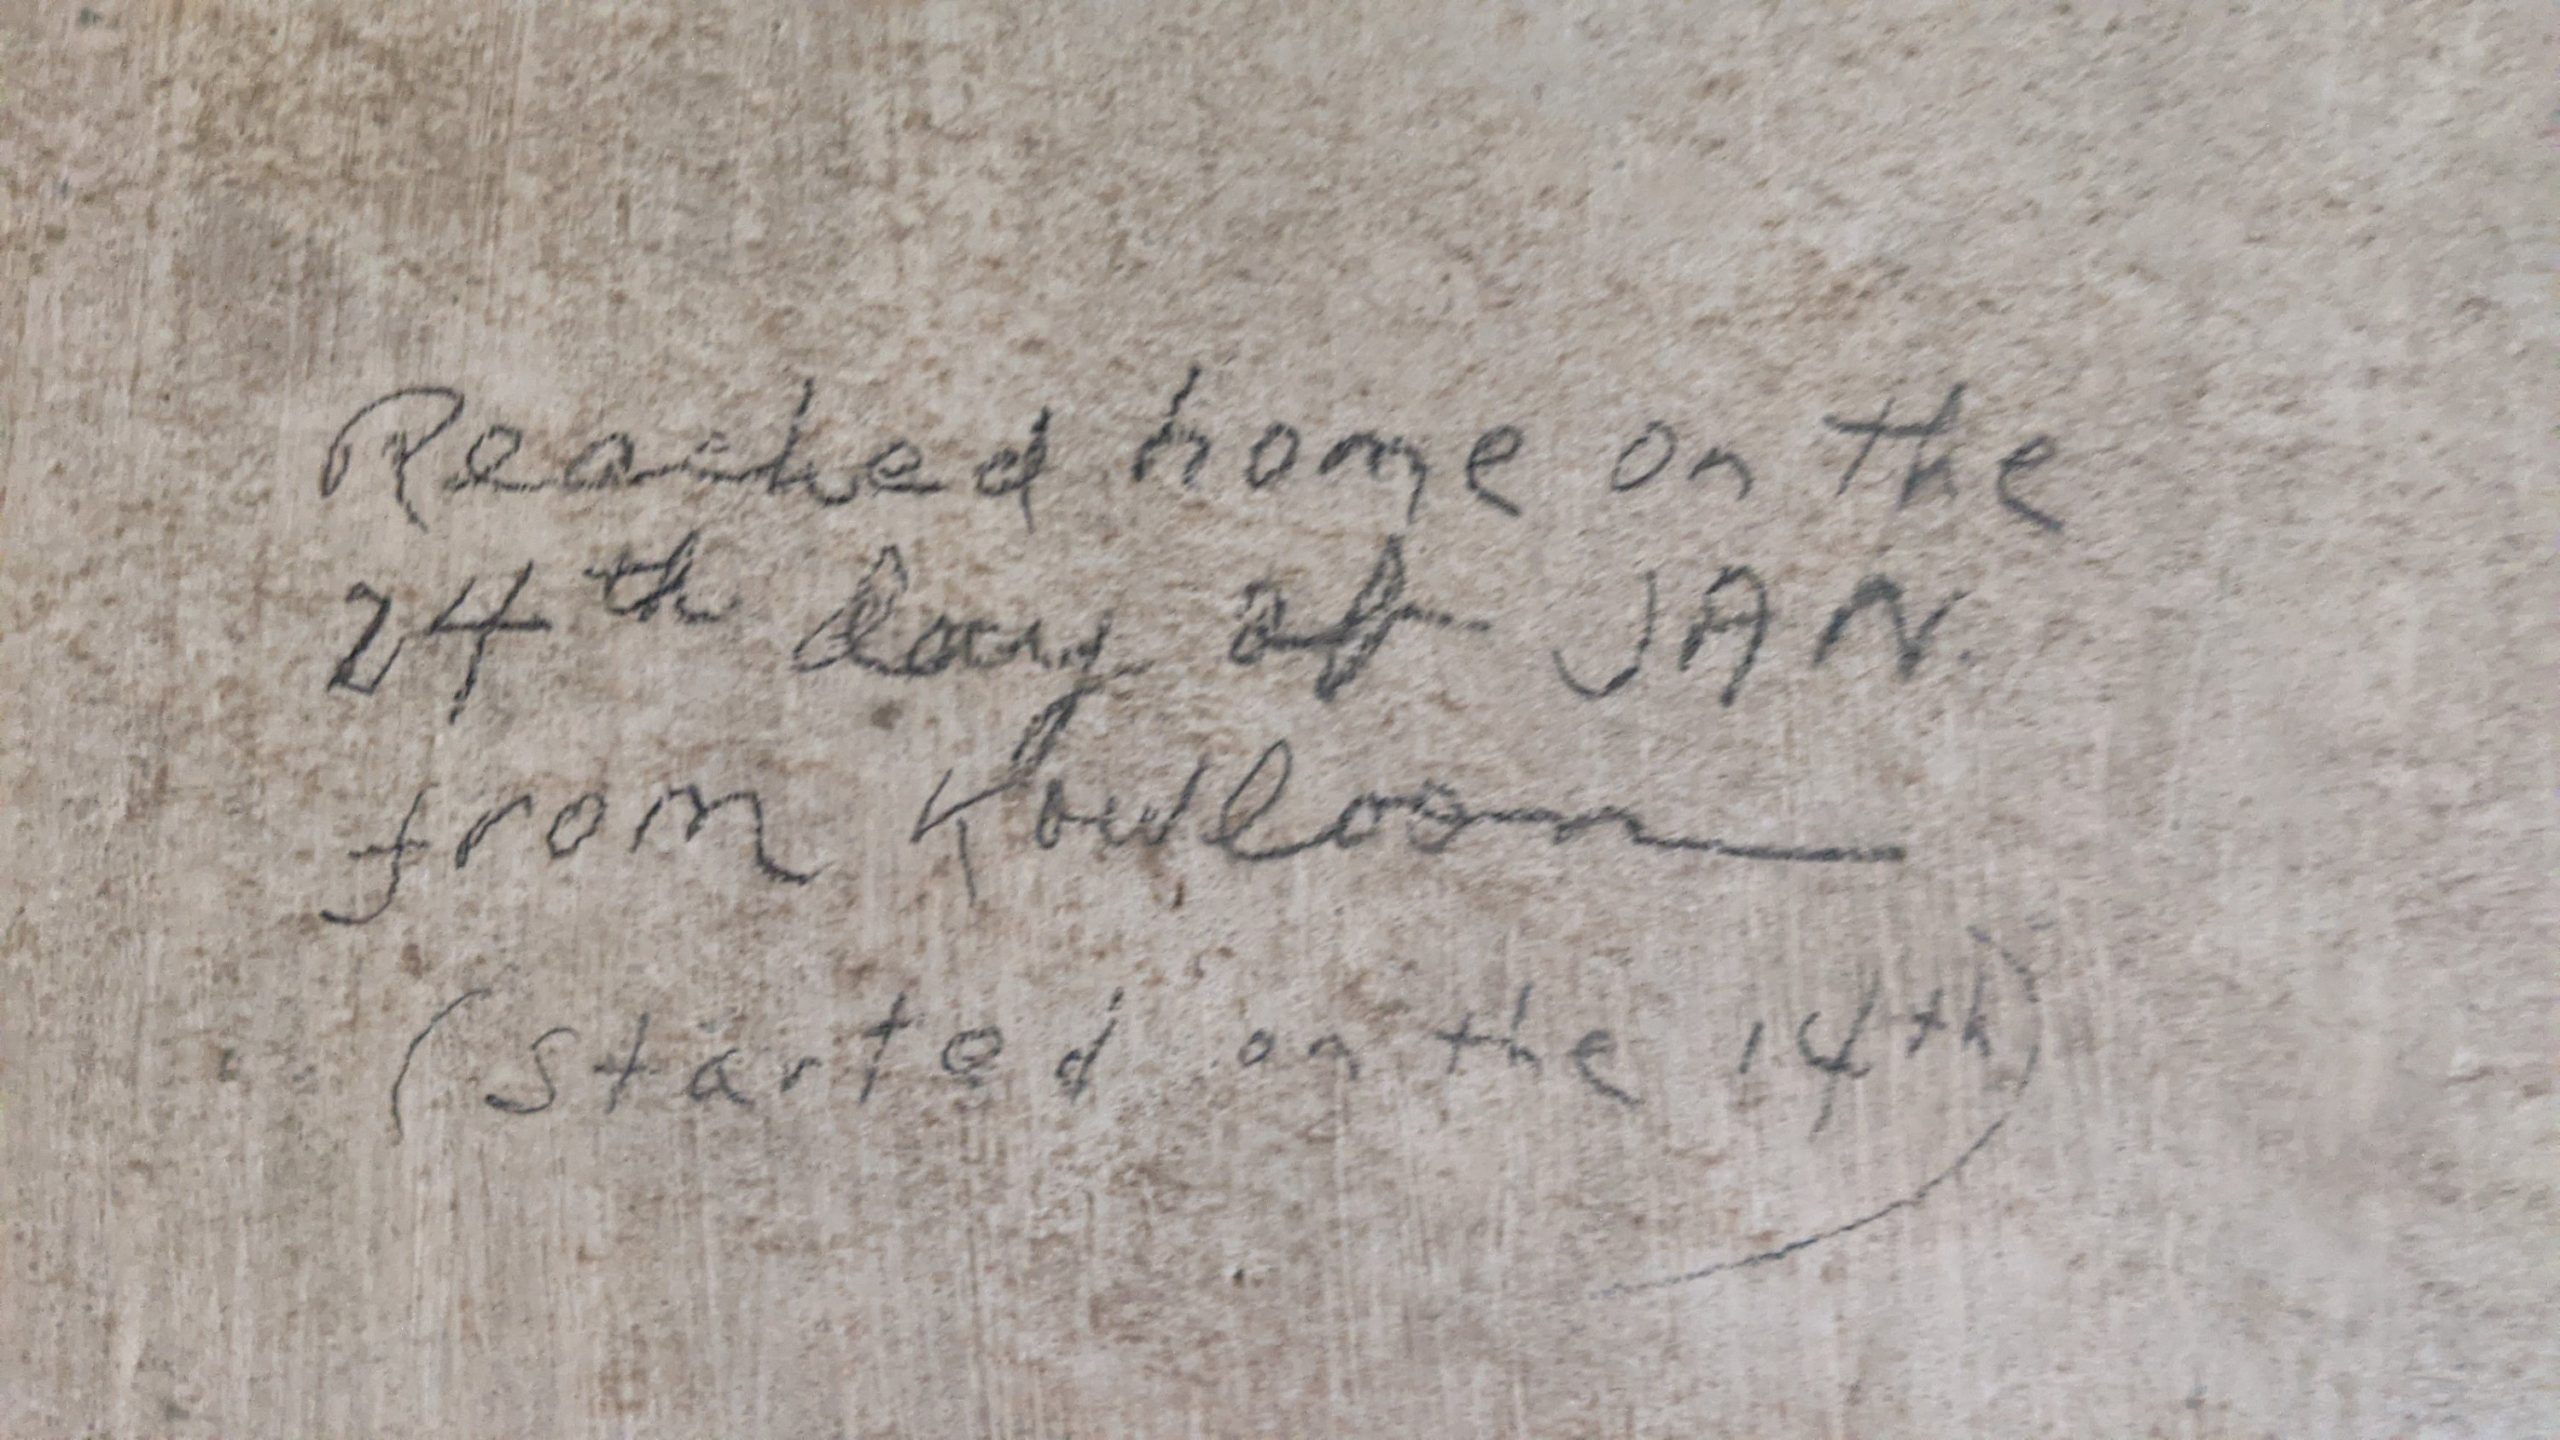 Reached home on the
24th day of JAN.
from Kowloon
(started on the 14th)